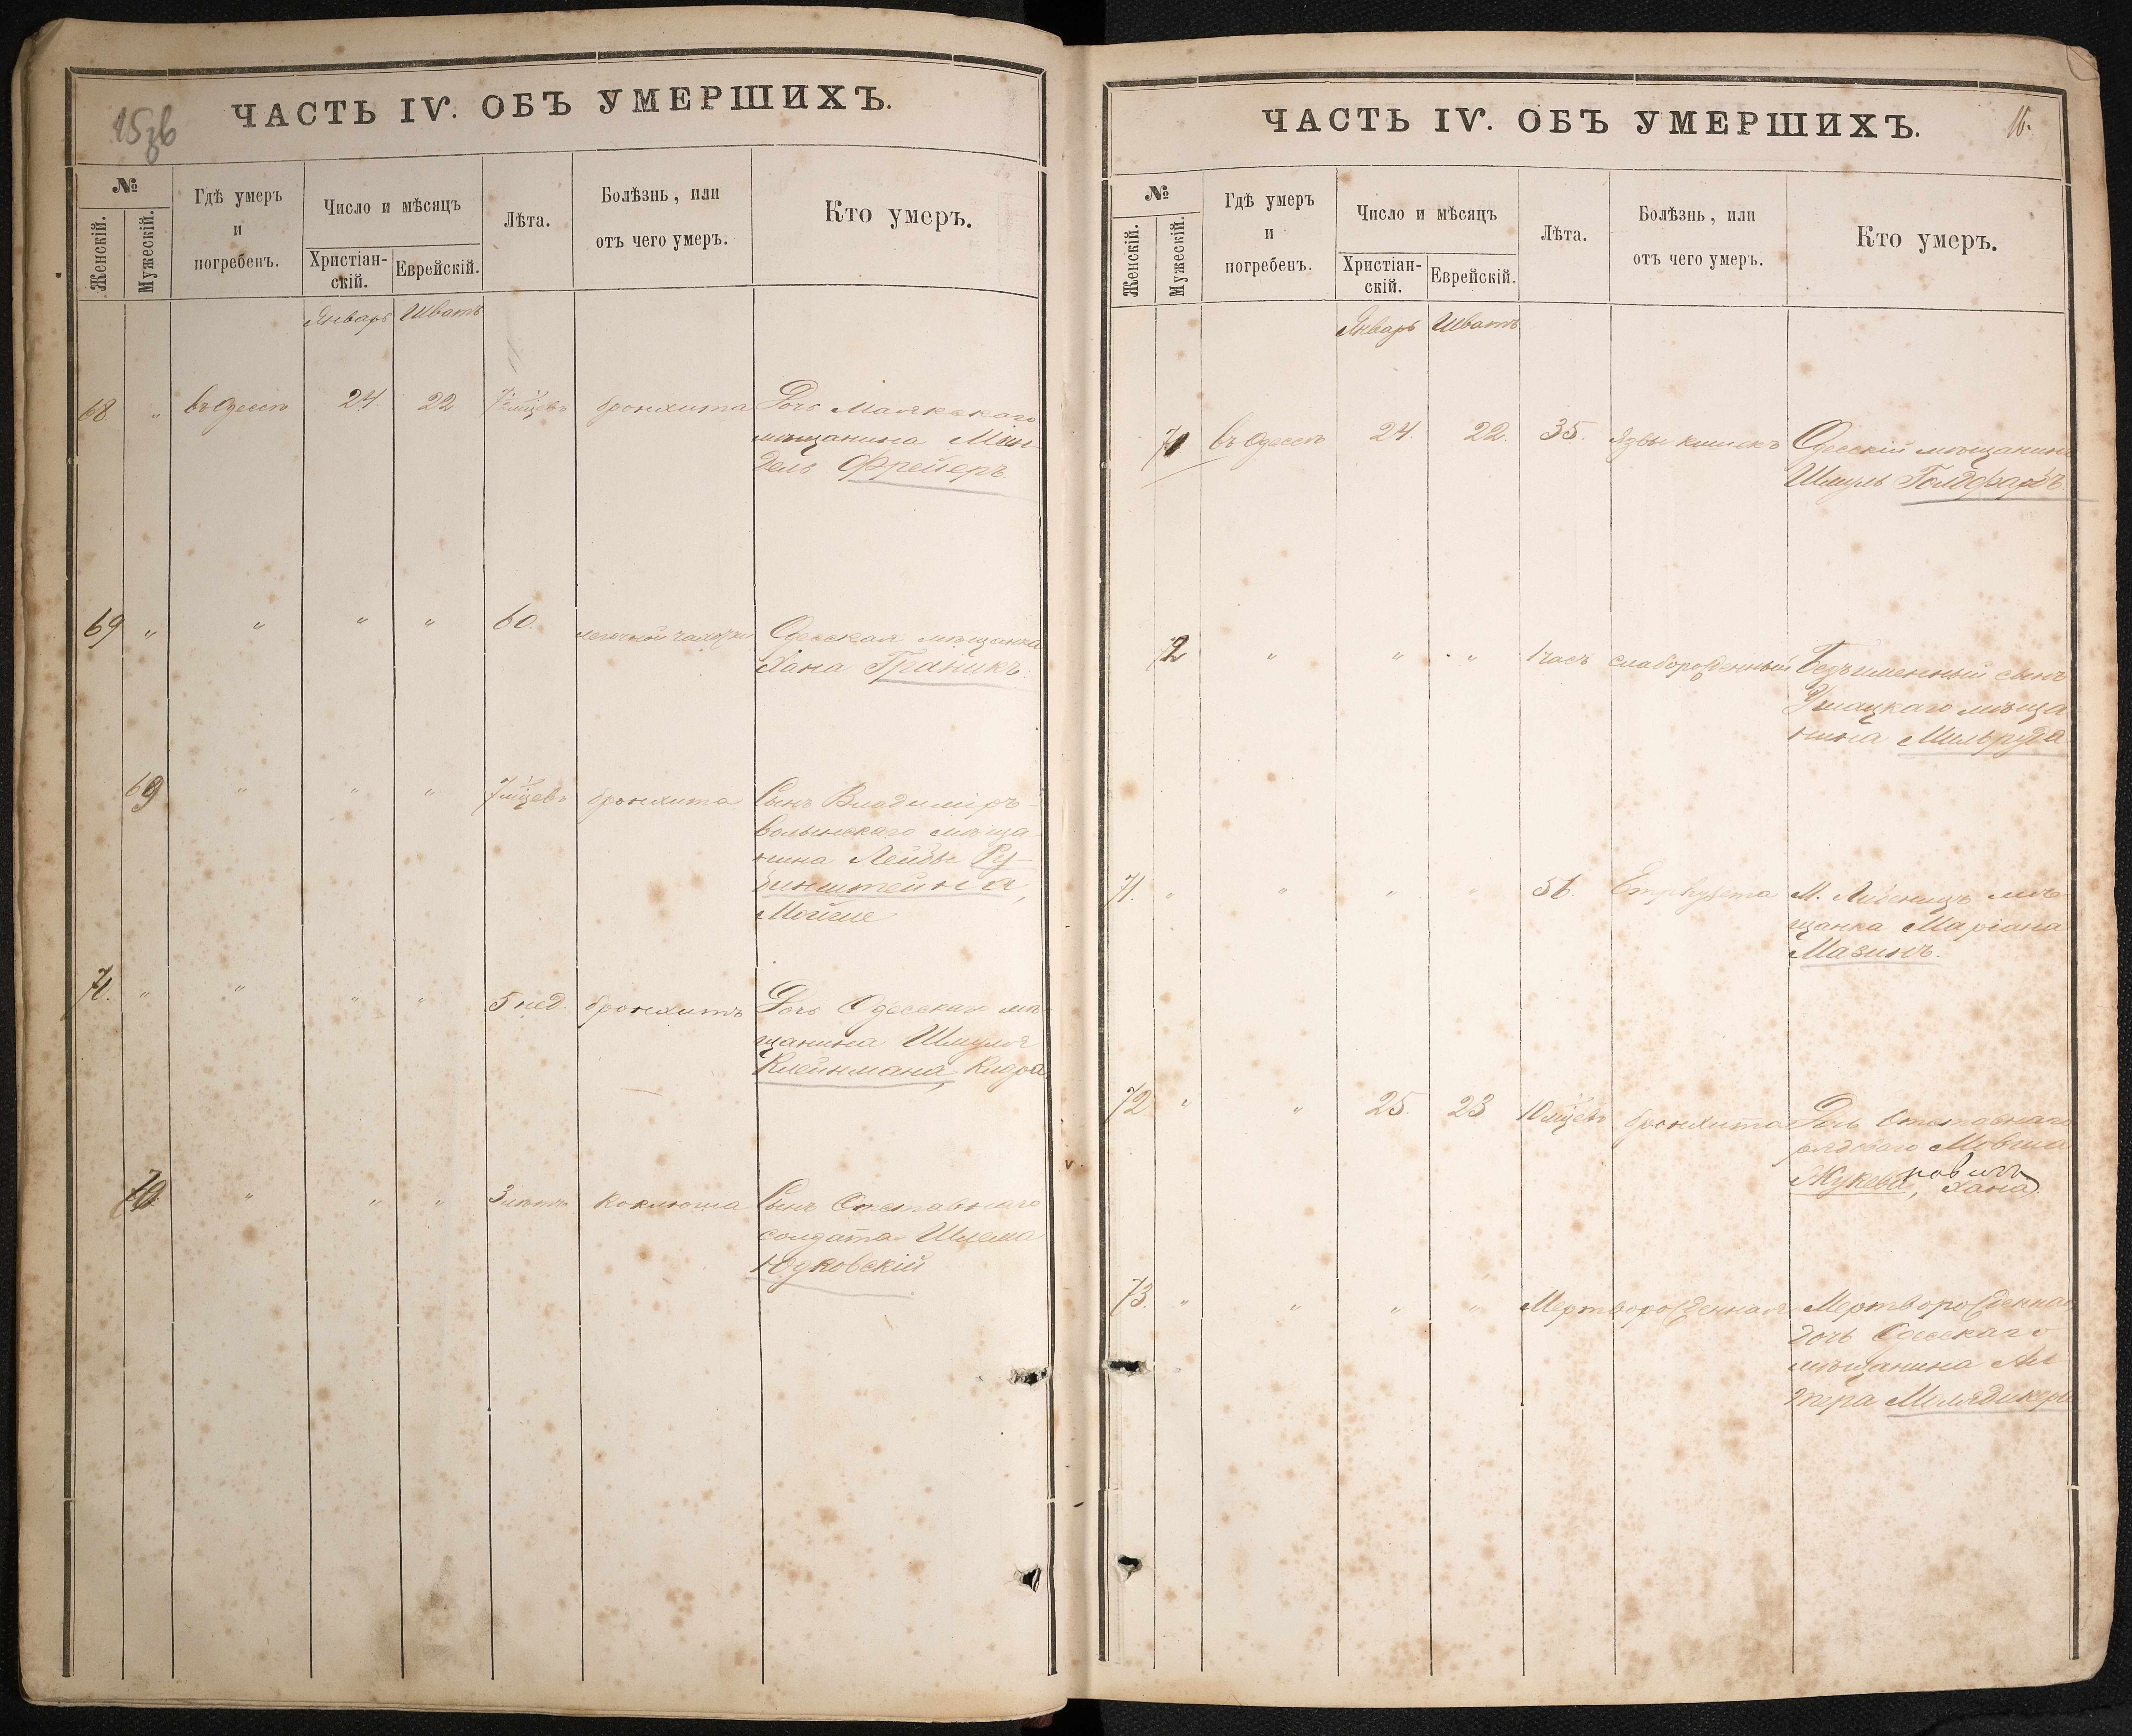 15зв
ЧАСТЬ IV. ОБЪ УМЕРШИХЪ.
№
Женскій.
Мужескій.
Гдѣ умеръ
и
погребенъ.
Число и мѣсяцъ
Христіан-
скій.
Еврейскій.
Лѣта.
Болѣзнь, или
отъ чего умеръ.
Кто умеръ.
Январь Шватъ
68 " въ Одессѣ 24 22 бронхита Дочь Маякскаго
мѣщанина
Фрейеръ
69 " " " " 60. Одесская мѣщанка
Хана Граникъ
69 " " " 7 мѣсцевъ бронхита Сынъ Владиміръ-
волынскаго мѣща-
нина Лейбы Ру-
бинштейна,
" " " " 5 нед. бронхитъ Дочь Одесскаго мѣ-
щанина Шмуля
Клейнмана,
70 " " " 3 лѣтъ Коклюша Сынъ Отставнаго
солдата Шлема
Юдковскій
ЧАСТЬ IV. ОБЪ УМЕРШИХЪ.
16.
№
Женскій.
Мужескій.
Гдѣ умеръ
и
погребенъ.
Число и мѣсяцъ
Христіан-
скій.
Еврейскій.
Лѣта.
Болѣзнь, или
отъ чего умеръ.
Кто умеръ.
Январь Шватъ
71 въ Одессѣ 24. 22. 35. Язвы кишекъ Одесскій мѣщанинъ
Шмуль Голдфарбъ
72 " " " 1 часъ слаборожденный Безъименный сынъ
мѣща
нина Мильруда
71. " " " " 56 М. мѣ
щанка Маріана
Мазинъ.
72 " " 25. 23 10 мѣсцевъ бронхита Дочь Отставнаго
рядоваго Мовша
Хана
73. " " " " Мертворожденная Мертворожденная
дочь Одесскаго
мѣщанина Ал
тера